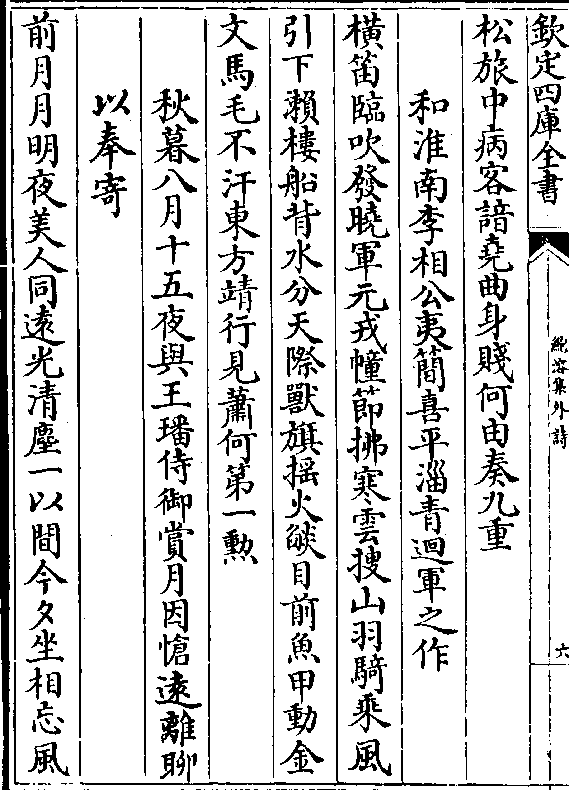 欽定四庫全書
絶溶集外詩
六
松旅中病客諳堯曲身賤何由奏九重
和淮南李相公夷簡喜平淄青迴軍之作
横笛臨吹發曉軍元戎幢節拂寒雲搜山羽騎乘風
引下瀨樓船背水分天際獸旗摇火燄目前魚甲動金
文馬毛不汗東方靖行見蕭何第一勲
秋暮八月十五夜與王璠侍御賞月因愴逺離聊
以奉寄
前月月明夜美人同逺光清塵一以間今夕坐相忘風